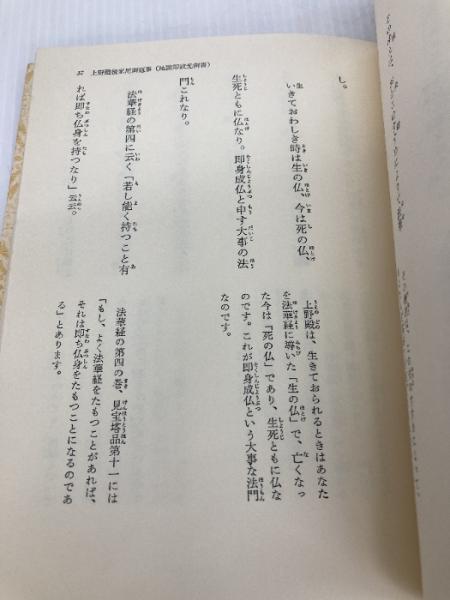 37 上野殿後家尼御返事（地獄即寂光御書）
し。
生きておわしき時は生の仏、今は死の仏、
生死ともに仏なり。即身成仏と申す大事の法
門これなり。
法華経の第四に云く「若し能く持つこと有
れば即ち仏身を持つなり」云云。
上野殿は、生きておられるときはあなた
を法華経に導いた「生の仏」で、亡くなっ
た今は「死の仏」であり、生死ともに仏な
のです。これが即身成仏という大事な法門
なのです。
法華経の第四の巻、見宝塔品第十一には
「もし、よく法華経をたもつことがあれば、
それは即ち仏身をたもつことになるのであ
る」とあります。